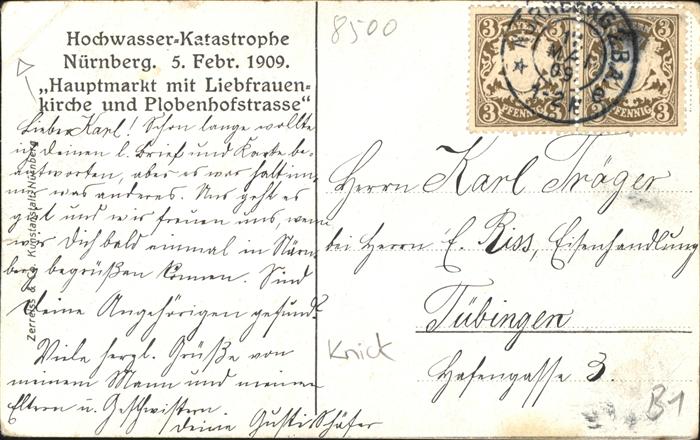 8500
Hochwasser-Katastrophe
Nürnberg. 5. Febr. 1909.
„Hauptmarkt mit Liebfrauen-
kirche und Plobenhofstrasse“
Zerreiss & Co. Kunstanstalt, Nürnberg
Lieber Karl! Schon lange wollte
ich deinen l. Brief und Karte be-
antworten, aber es war halt im-
mer was anderes. Uns geht es
gut und wir freuen uns, wenn
wir Dich bald einmal in Nürn-
berg begrüßen können. Sind
deine Angehörigen gesund?
Viele herzl. Grüße von
meinem Mann und meinen
Eltern u. Geschwistern.
deine Gusti Schäfer
3 3
PFENNIG PFENNIG
NÜRNBERG
MAI
09
Herrn Karl Träger
bei Herrn E. Riss, Eisenhandlung
Tübingen
Hafengasse 3.
Knick
B1